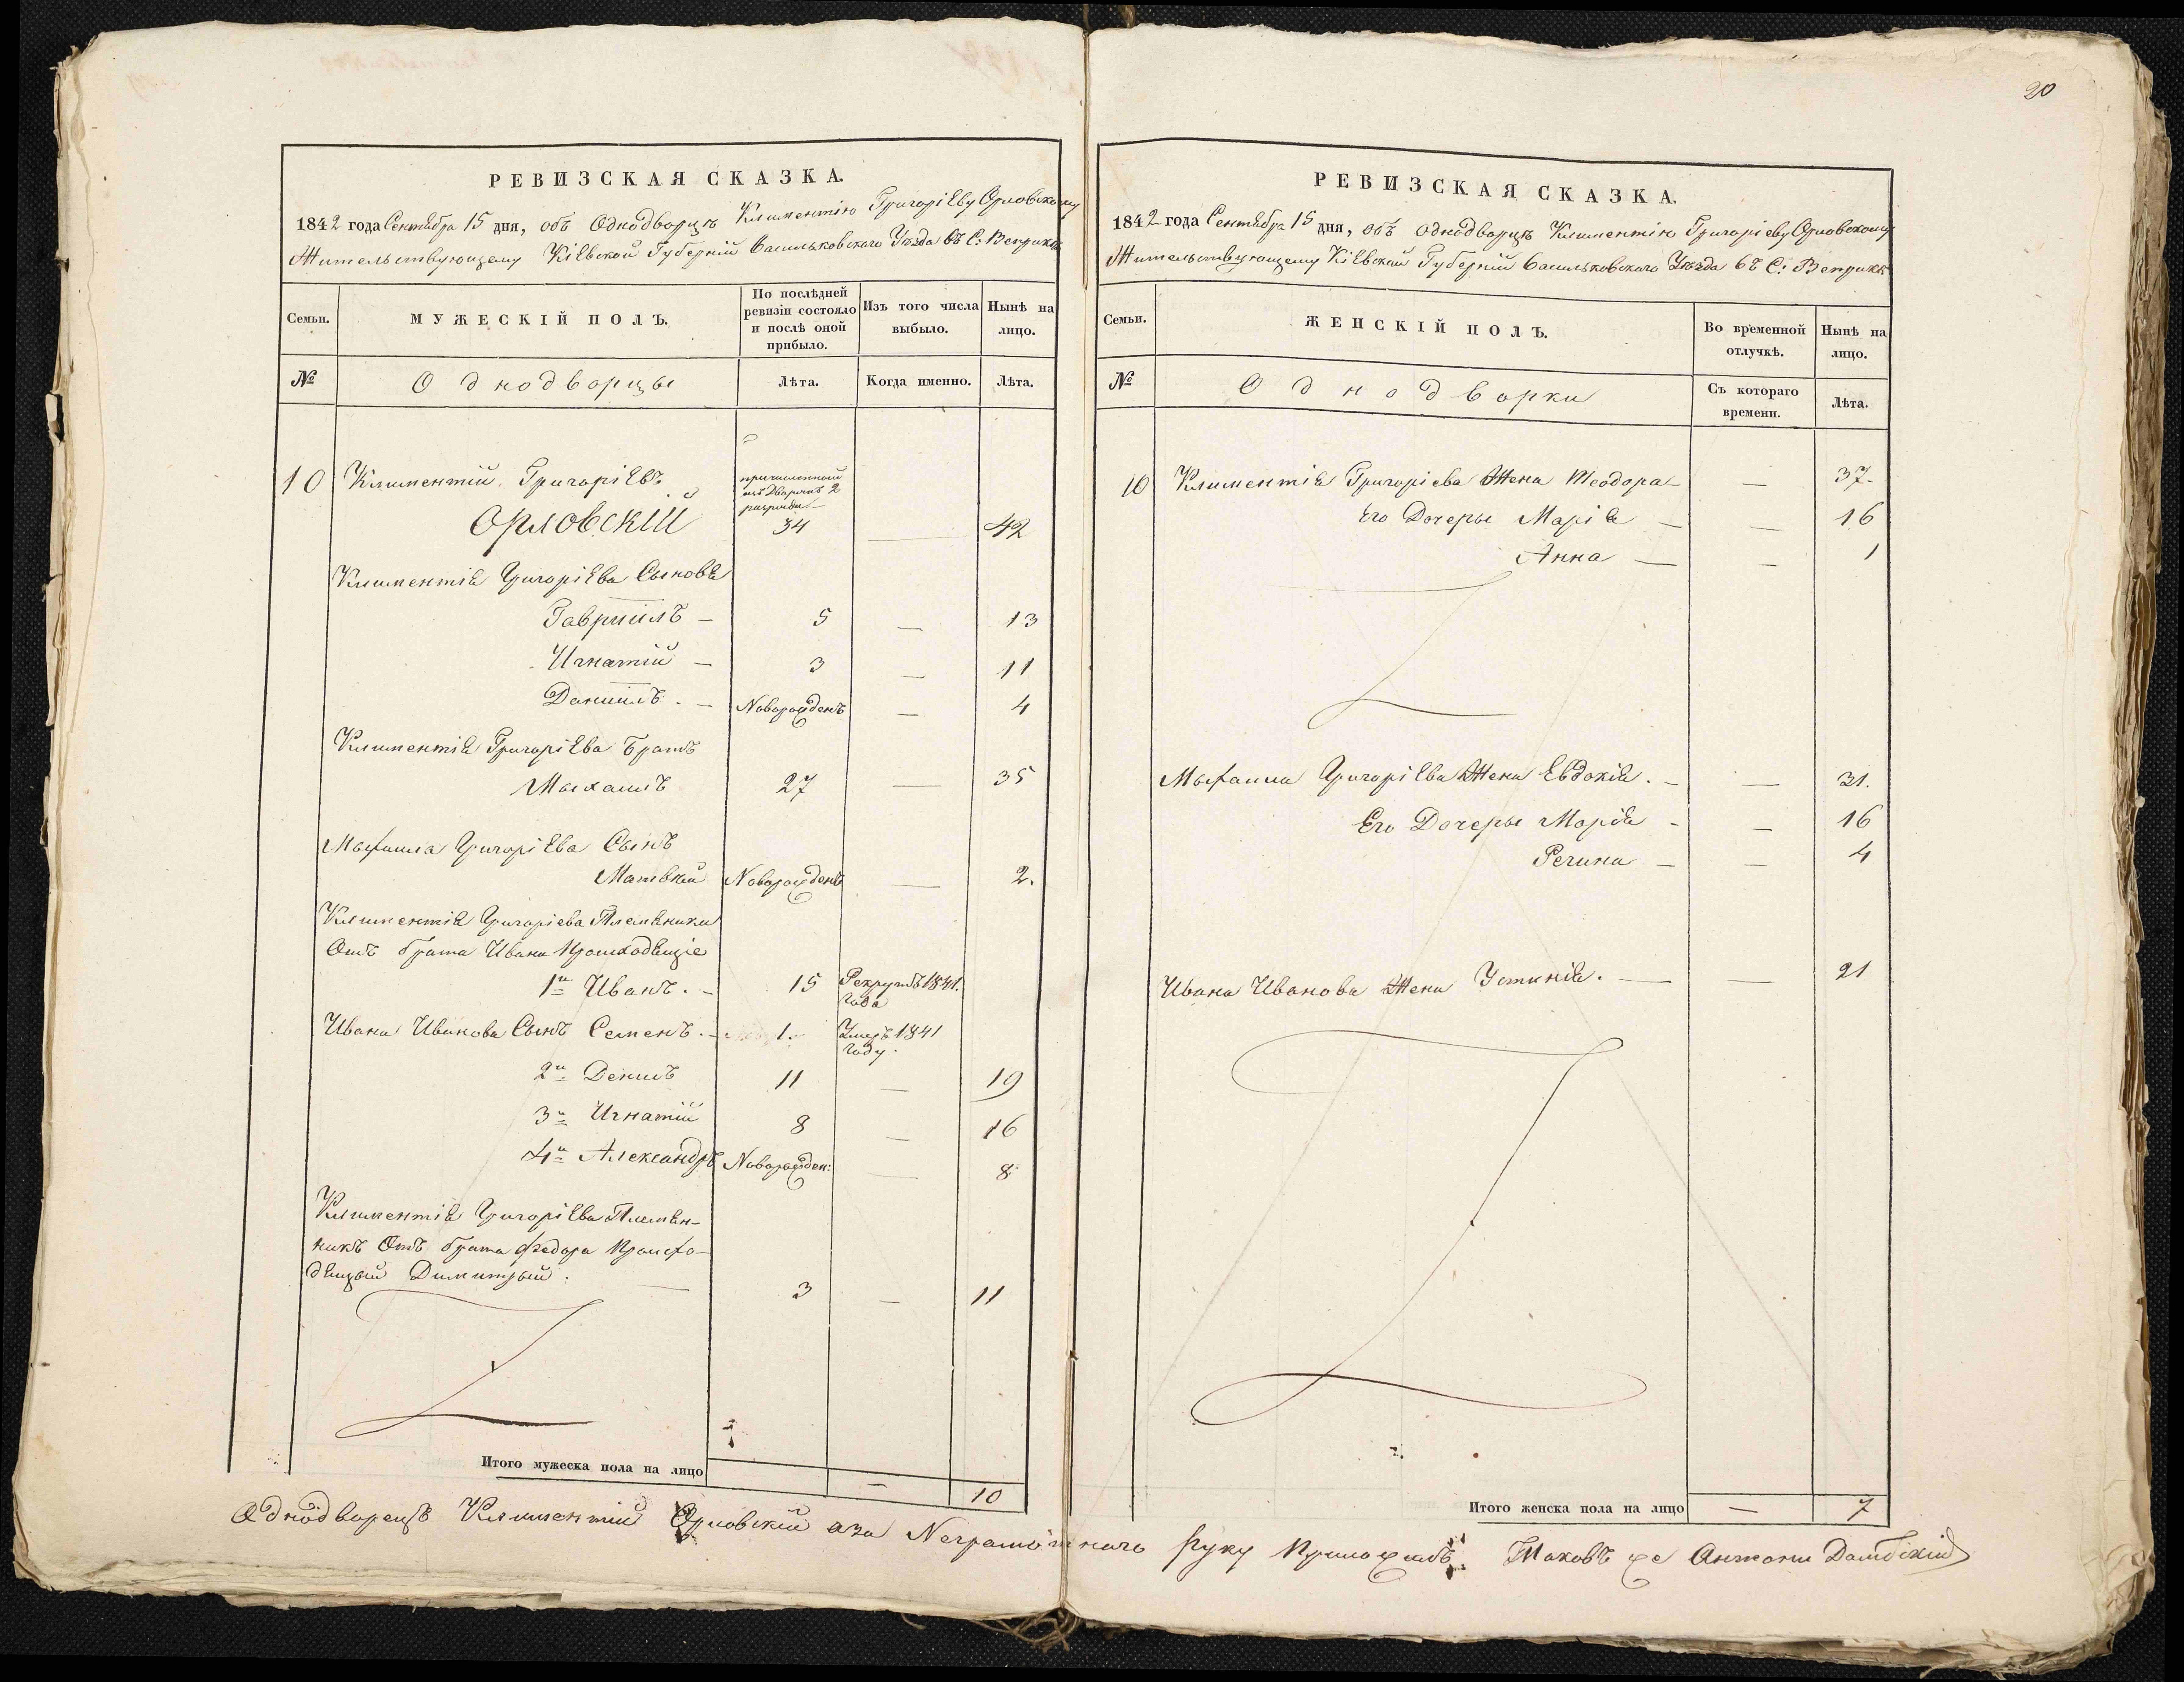 РЕВИЗСКАЯ СКАЗКА.
1842 года Сентября 15 дня, объ Однодворцѣ Климентію Григоріеву Орловскому
Жительствующему Кіевской Губерніи Васильковскаго Уѣзда въ С: Веприкѣ
Семьи.
МУЖЕСКІЙ ПОЛЪ.
По послѣдней ревизіи состояло и послѣ оной прибыло.
Изъ того числа выбыло.
Нынѣ на лицо.
№
Однодворцы
Лѣта.
Когда именно.
Лѣта.
10 Климентій Григоріевъ причисленной изъ Дворянъ 2 разряда
Орловскій 34 — 42
Климентія Григоріева Сыновя
Гавріилъ — 5 — 13
Игнатій — 3 — 11
Даніилъ. — Новорожденъ — 4
Климентія Григоріева Братъ
Мыхаилъ 27 — 35
Мыхаила Григоріева Сынъ
Матвѣй Новорожденъ — 2.
Климентія Григоріева Племяники
Отъ брата Ивана Происходящіе
1й Иванъ. — 15 Рекрутъ 1841. года
Ивана Иванова Сынъ Семенъ. — 1. Умеръ 1841 году.
2й Денисъ 11 — 19
3й Игнатій 8 — 16
4й Александръ Новорожден: — 8
Климентія Григоріева Племян-
никъ Отъ брата Федора Происхо-
дящый Димитрый. — 3 — 11
Итого мужеска пола на лицо — 10
20
РЕВИЗСКАЯ СКАЗКА.
1842 года Сентября 15 дня, объ однодворцѣ Климентію Григоріеву Орловскому
Жительствующему Кіевской Губерніи Васильковскаго Уѣзда въ С: Веприкѣ
Семьи.
ЖЕНСКІЙ ПОЛЪ.
Во временной отлучкѣ.
Нынѣ на лицо.
№
Однодворки
Съ котораго времени.
Лѣта.
10 Климентія Григоріева Жена Теодора — — 37.
Его Дочеры Марія — — 16
Анна — — 1
Мыхаила Григоріева Жена Евдокія. — — 31.
Его Дочеры Марія — — 16
Регина — — 4
Ивана Иванова Жена Устинія. — — 21
Итого женска пола на лицо — 7
Однодворецъ Климентій Орловскій а за Неграмотнаго Руку Приложилъ. Таковъ же Антони Дамбскій